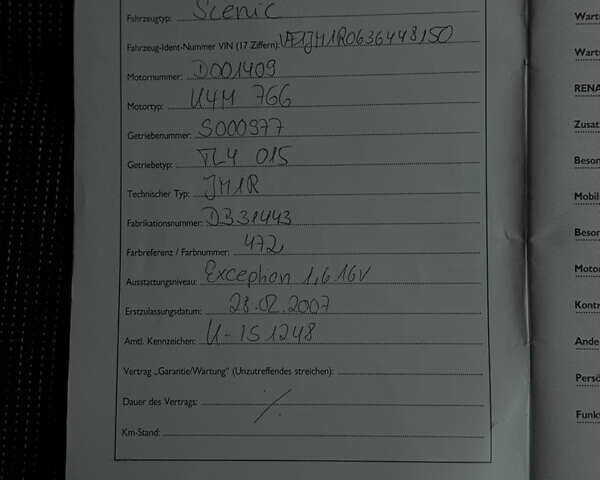 Fahrzeugtyp: Scenic
Fahrzeug-Ident-Nummer VIN (17 Ziffern): VF1JM1R0636448150
Motornummer: D001409
Motortyp: K4M 766
Getriebenummer: S000977
Getriebetyp: TL4 015
Technischer Typ: JM1R
Fabrikationsnummer: D331443
Farbreferenz / Farbnummer: 472
Ausstattungsniveau: Exception 1,6 16V
Erstzulassungsdatum: 28.02.2007
Amtl. Kennzeichen: U-IS1248
Vertrag „Garantie/Wartung" (Unzutreffendes streichen):
Dauer des Vertrags:
Km-Stand:
Wart
Wart
RENA
Zusat
Beson
Mobil
Beson
Motor
Kontr
Ande
Persö
Funkt